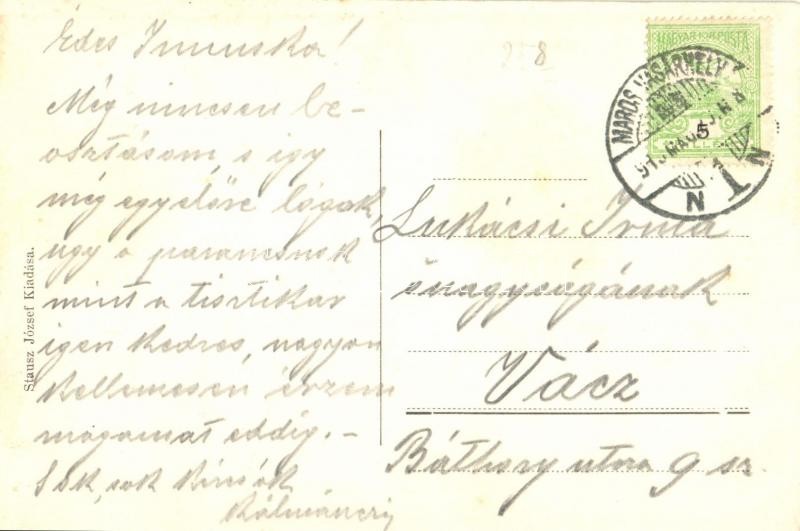 Édes Irmuska!
Még nincsen be-
osztásom s így
még egyelőre lógok,
úgy a parancsnok
mint a tisztikar
igen kedves, nagyon
kellemesen érzem
magamat eddig.-
Sok, sok
Stausz József Kiadása.
MAGYAR KIR. POSTA
5
MAROS-VÁSÁRHELY
N 1 N
Lukácsi Irma
őnagyságának
Vácz
Báthory utca 9 sz.